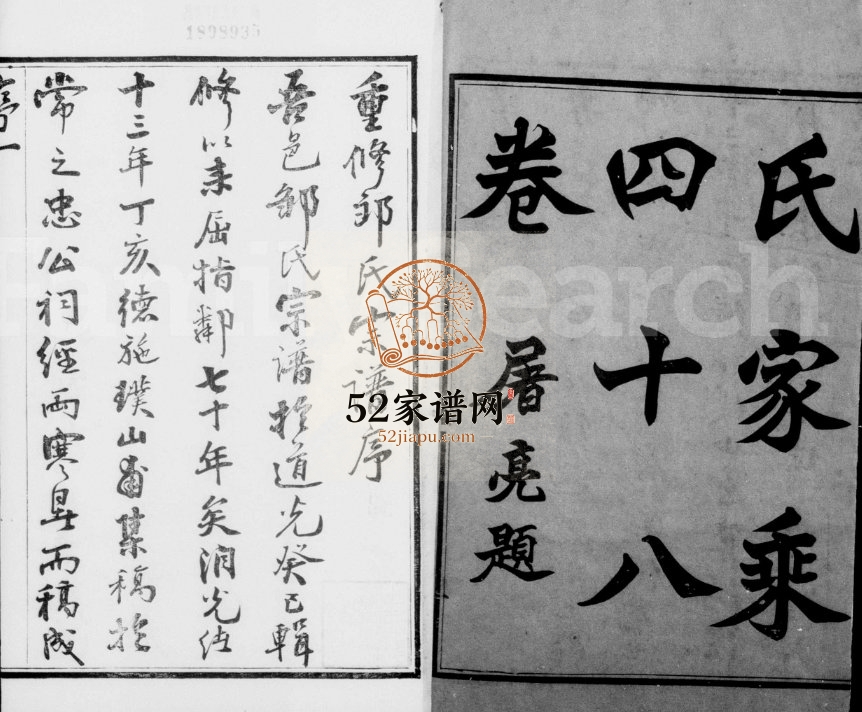 1898935
氏家乘
四十八
卷 屠亮題
重修邹氏宗谱序
吾邑邹氏宗谱於道光癸巳輯
修以来屈指鄰七十年矣
十三年丁亥德施璞山集稿於
常之忠公祠經兩寒暑而稿成
序一
FamilySearch
52家谱网
52jiapu.com